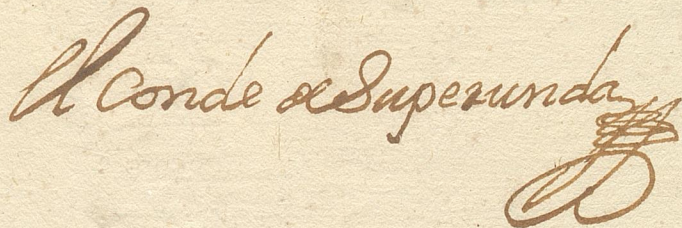 El Conde de Superunda